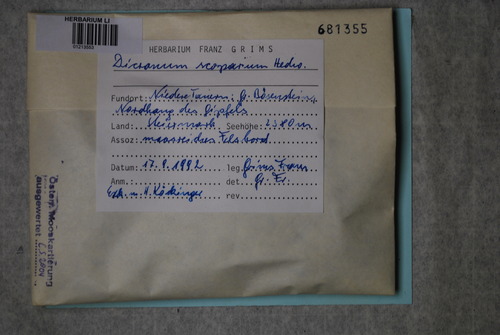 HERBARIUM LI
681355
HERBARIUM FRANZ GRIMS
Dicranum scoparium Hedw.
Fundort: Niedere Tauern: G. Bösenstein,
Nordhang des Gipfels
Land: Steiermark Seehöhe: 2380 m
Assoz: moosreiches Felsbord
Datum: 17.9.1992 leg. Grims Franz
Anm.: det. Gr. Fr.
Exk. m. H. Köckinger rev.
Österr. Mooskartierung
ausgewertet